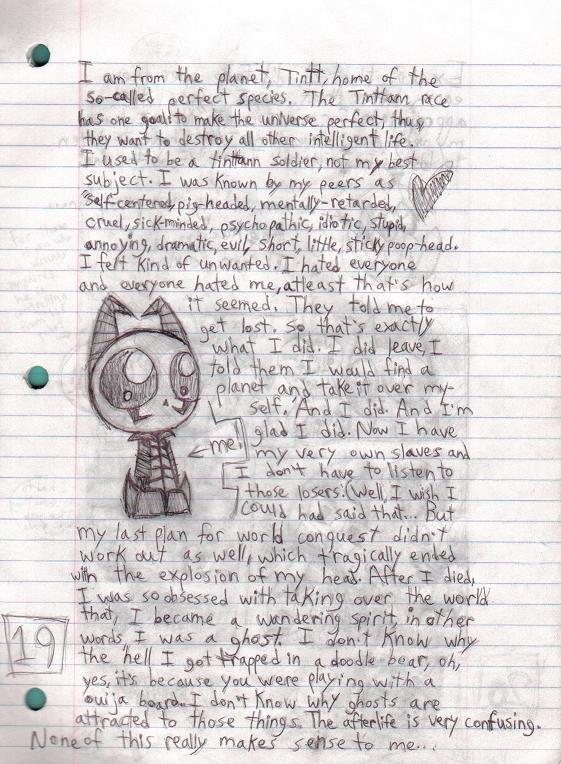 I am from the planet, Tintt, home of the
so-called perfect species. The Tinttann race
has one goal: to make the universe perfect, thus,
they want to destroy all other intelligent life.
I used to be a tinttann soldier, not my best
subject. I was known by my peers as
"self-centered, pig-headed, mentally-retarded,
cruel, sick-minded, psychopathic, idiotic, stupid,
annoying, dramatic, evil, short, little, sticky poop-head.
I felt kind of unwanted. I hated everyone
and everyone hated me, atleast that's how
it seemed. They told me to
get lost. So that's exactly
what I did. I did leave, I
told them I would find a
planet and take it over my-
self. And I did. And I'm
glad I did. Now I have
me
my very own slaves and
I don't have to listen to
those losers. (Well, I wish I
could had said that... But
my last plan for world conquest didn't
work out as well, which tragically ended
with the explosion of my head. After I died,
I was so obsessed with taking over the world
that, I became a wandering spirit, in other
words I was a ghost. I don't know why
19
the hell I got trapped in a doodle-bear, oh,
yes, it's because you were playing with a
ouija board. I don't know why ghosts are
attracted to those things. The afterlife is very confusing.
None of this really makes sense to me...